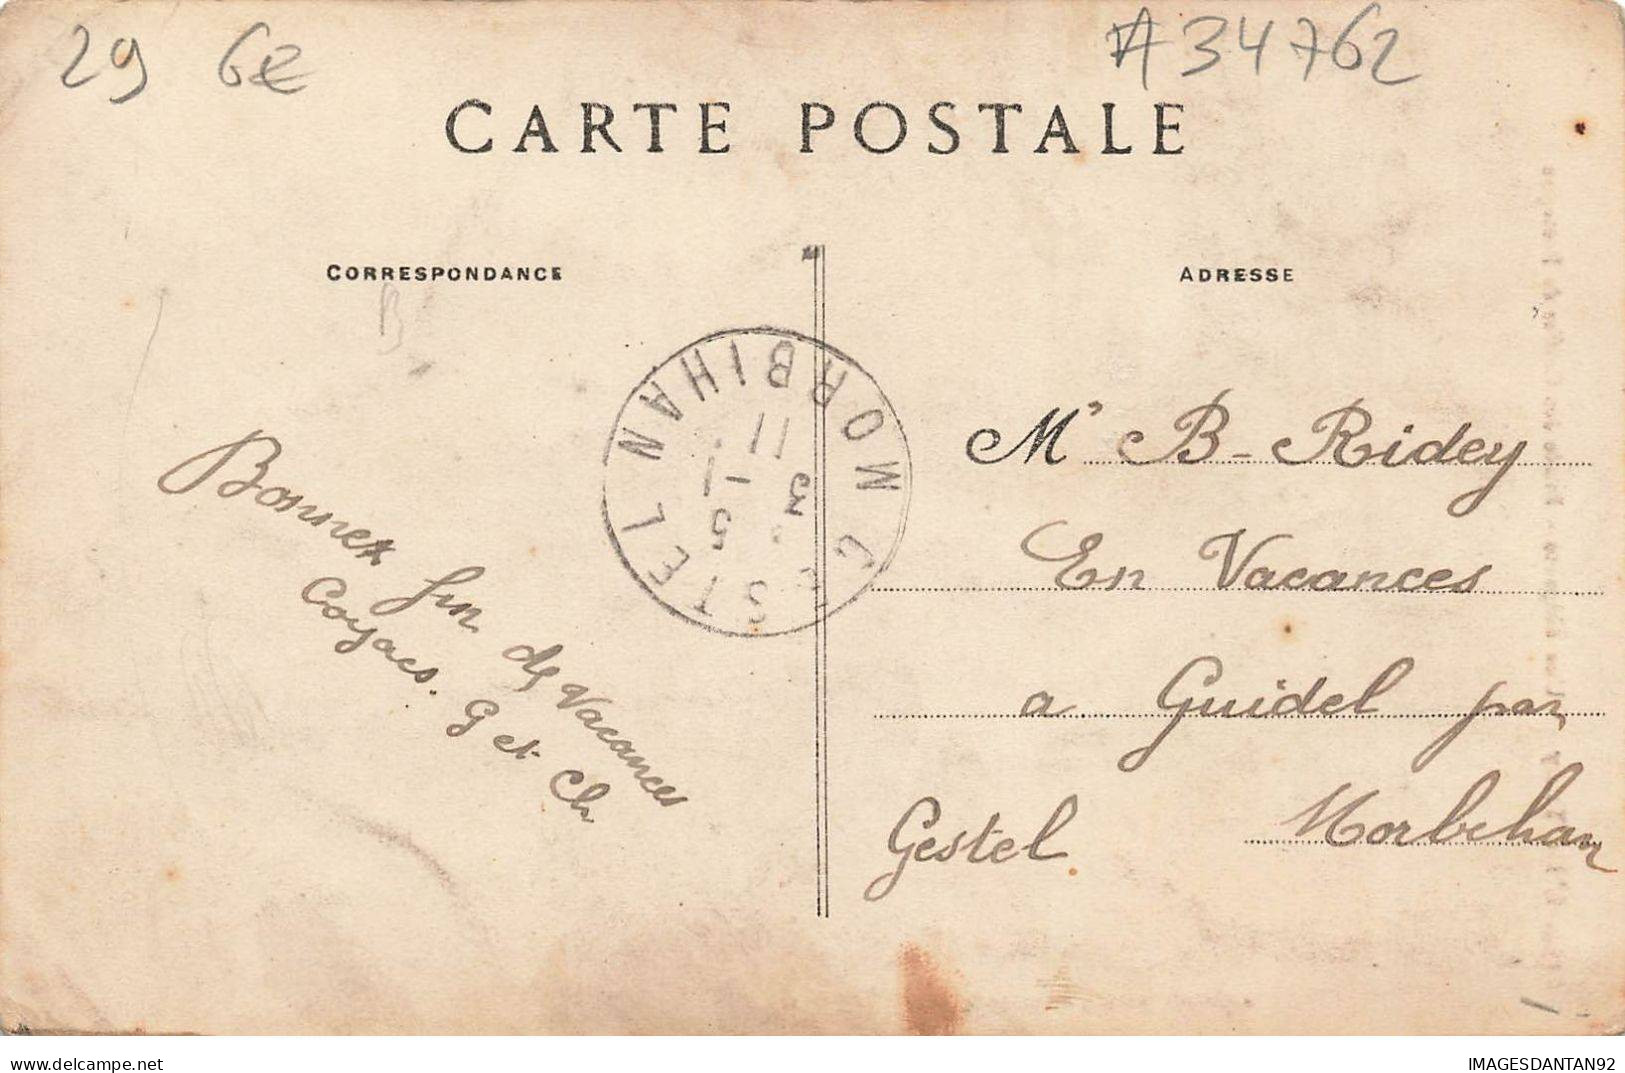 29 6e
A 34762
CARTE POSTALE
CORRESPONDANCE
ADRESSE
B
GESTEL MORBIHAN
11
5 - 1
3
Bonnes fin de Vacances
G et Ch
Mr B. Ridey
En Vacances
a Guidel par
Gestel Morbihan
IMAGESDANTAN92